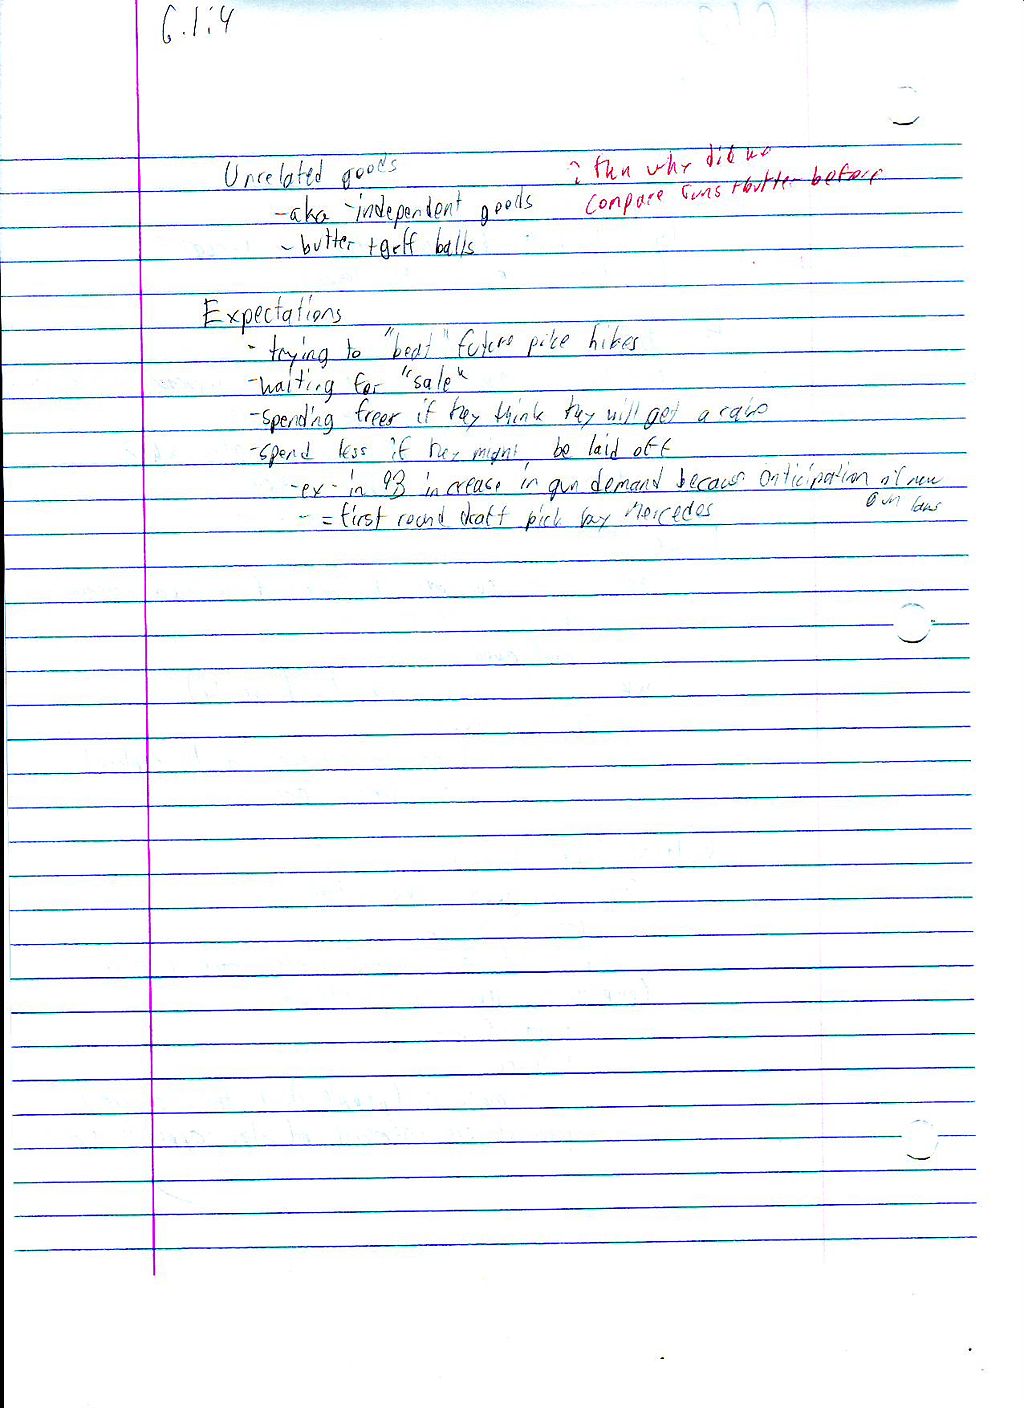 6.1:4
Unrelated goods
? then why did we
compare Guns + butter before
-aka -independent goods
- butter + golf balls
Expectations
- trying to "beat" future pike hikes
-waiting for "sale"
-spending freer if they think they will get a raise
-spend less if they might be laid off
-ex- in 93 increase in gun demand because anticipation of new
gun laws
- = first round draft pick buy Mercedes